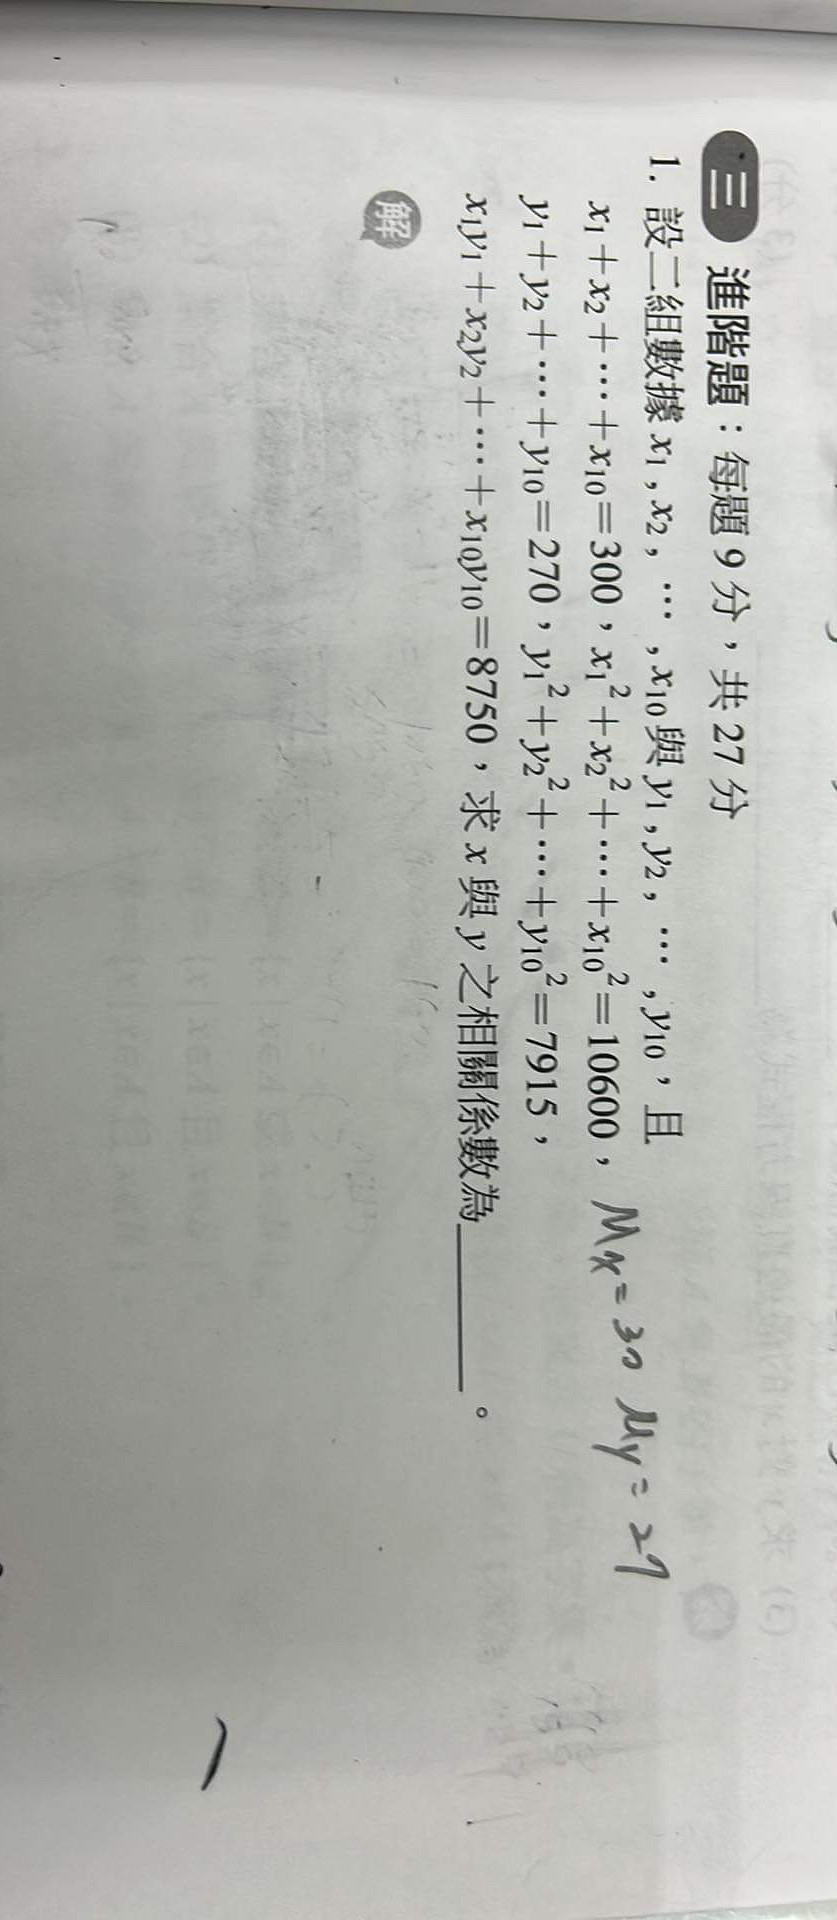 三 進階題：每題 9 分，共 27 分
1. 設二組數據 x₁，x₂，…，x₁₀ 與 y₁，y₂，…，y₁₀，且
x₁＋x₂＋…＋x₁₀＝300，x₁²＋x₂²＋…＋x₁₀²＝10600， Mx=30 My=27
y₁＋y₂＋…＋y₁₀＝270，y₁²＋y₂²＋…＋y₁₀²＝7915，
x₁y₁＋x₂y₂＋…＋x₁₀y₁₀＝8750，求 x 與 y 之相關係數為______。
解